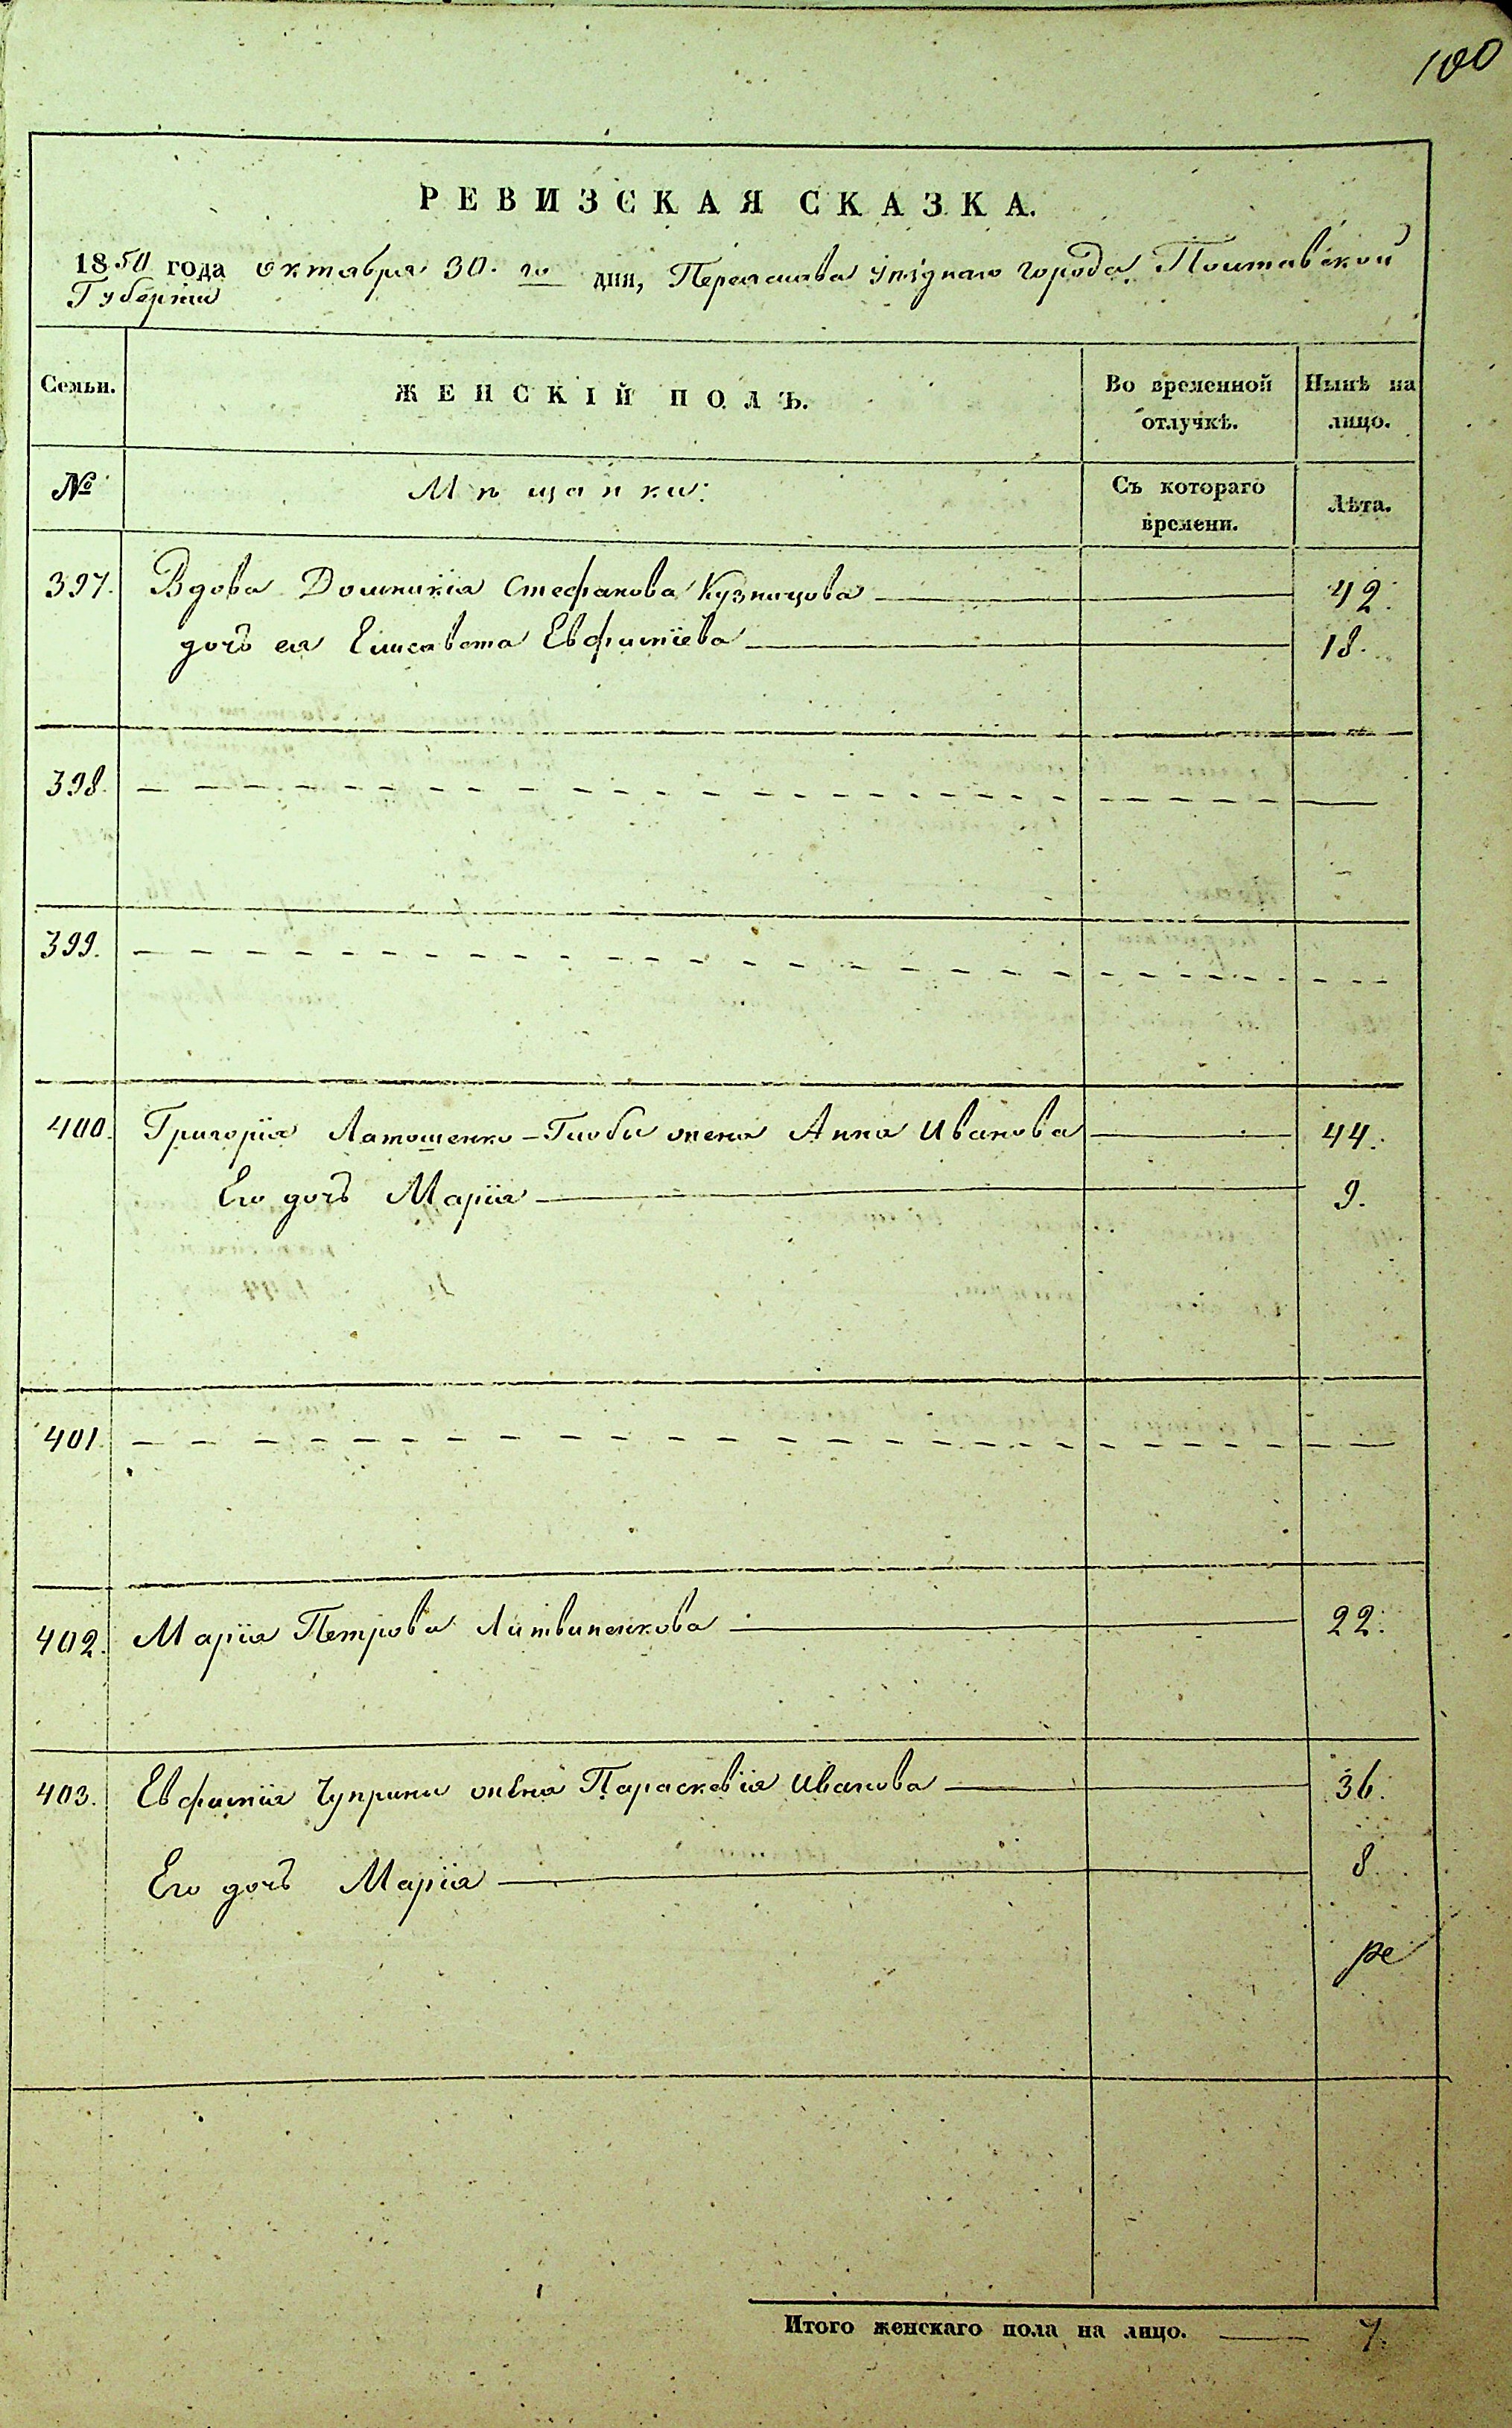 100
РЕВИЗСКАЯ СКАЗКА.
1850 года октября 30. го дня, Переяслава Уѣзднаго города Полтавской
Губерніи
Семьи. ЖЕНСКІЙ ПОЛЪ. Во временной отлучкѣ. Нынѣ на лицо.
№ Мѣщанки: Съ котораго времени. Лѣта.
397. Вдова Домникія Стефанова Кузнецова 42.
дочь ея Елисавета Евфиміева 18.
398.
399.
400. Григорія Латошенко-Глобы жена Анна Иванова 44.
Его дочь Марія 9.
401.
402. Марія Петрова Литвиненкова 22.
403. Евфимія Чуприны жена Параскевія Иванова 36.
Его дочь Марія 8.
Итого женскаго пола на лицо. 7.